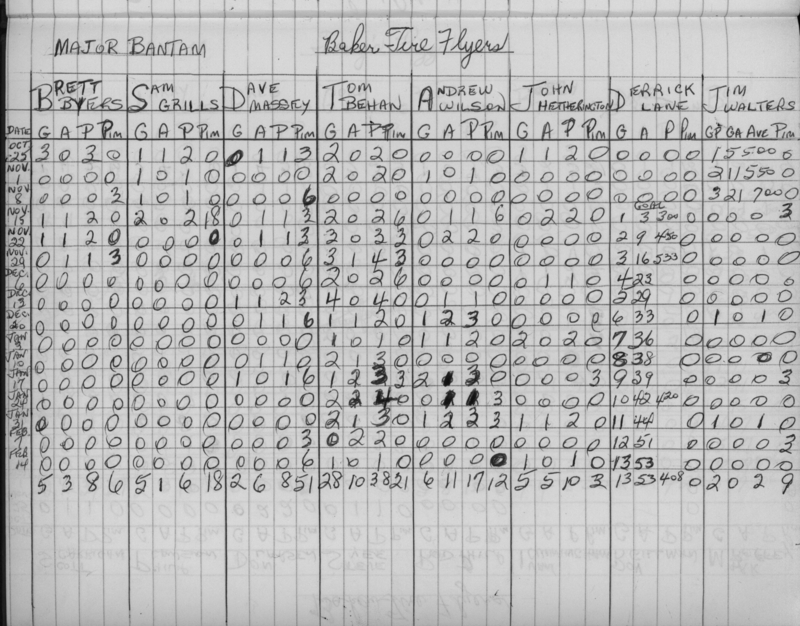 MAJOR BANTAM Baker Tire Flyers
BRETT BYERS SAM GRILLS DAVE MASSEY TOM BEHAN ANDREW WILSON JOHN HETHERINGTON DERRICK LANE JIM WALTERS
DATE G A P Pim G A P Pim G A P Pim G A P Pim G A P Pim G A P Pim G A P Pim GP GA Ave Pim
OCT 25 3 0 3 0 1 1 2 0 0 1 1 3 2 0 2 0 0 0 0 0 1 1 2 0 0 0 0 0 1 5 5.00 0
NOV. 1 0 0 0 0 1 0 1 0 0 0 0 0 2 0 2 0 1 0 1 0 0 0 0 0 0 0 0 0 2 11 5.50 0
NOV 8 0 0 0 3 1 0 1 0 0 0 0 6 0 0 0 0 0 0 0 0 0 0 0 0 0 0 0 0 3 21 7.00 0
GOAL
NOV. 15 1 1 2 0 2 0 2 18 0 1 1 3 2 0 2 6 0 1 1 6 0 2 2 0 1 3 3.00 0 0 0 3
NOV 22 1 1 2 0 0 0 0 0 0 1 1 3 3 0 3 3 0 2 2 0 0 0 0 0 2 9 4.50 0 0 0 0
NOV. 29 0 1 1 3 0 0 0 0 0 0 0 6 3 1 4 3 0 0 0 0 0 0 0 0 3 16 5.33 0 0 0 0
DEC. 6 0 0 0 0 0 0 0 0 0 0 0 6 2 0 2 6 0 0 0 0 0 1 1 0 4 23 0 0 0 0
DEC 13 0 0 0 0 0 0 0 0 1 1 2 3 4 0 4 0 0 1 1 0 0 0 0 0 5 29 0 0 0 0
DEC 20 0 0 0 0 0 0 0 0 0 1 1 6 1 1 2 0 1 2 3 0 0 0 0 0 6 33 0 1 0 1 0
JAN 3 0 0 0 0 0 0 0 0 0 0 0 0 1 0 1 0 0 1 1 2 0 2 0 2 0 7 36 0 0 0 0
JAN 10 0 0 0 0 0 0 0 0 0 1 1 0 2 1 3 0 0 0 0 0 0 0 0 0 8 38 0 0 0 0
JAN 17 0 0 0 0 0 0 0 0 1 0 1 6 1 2 3 3 2 1 3 0 0 0 0 3 9 39 0 0 0 0 3
JAN 24 0 0 0 0 0 0 0 0 0 0 0 0 2 2 4 0 0 1 1 3 0 0 0 0 10 42 4.20 0 0 0 0
JAN 31 0 0 0 0 0 0 0 0 0 0 0 0 2 1 3 0 1 2 3 3 1 1 2 0 11 44 0 1 0 1 0
FEB. 7 0 0 0 0 0 0 0 0 0 0 0 3 0 2 2 0 0 0 0 0 0 0 0 0 12 51 0 0 0 0 3
FEB 14 0 0 0 0 0 0 0 0 0 0 0 6 1 0 1 0 0 0 0 0 1 0 1 0 13 53 0 0 0 0 0
5 3 8 6 5 1 6 18 2 6 8 51 28 10 38 21 6 11 17 12 5 5 10 3 13 53 4.08 0 2 0 2 9